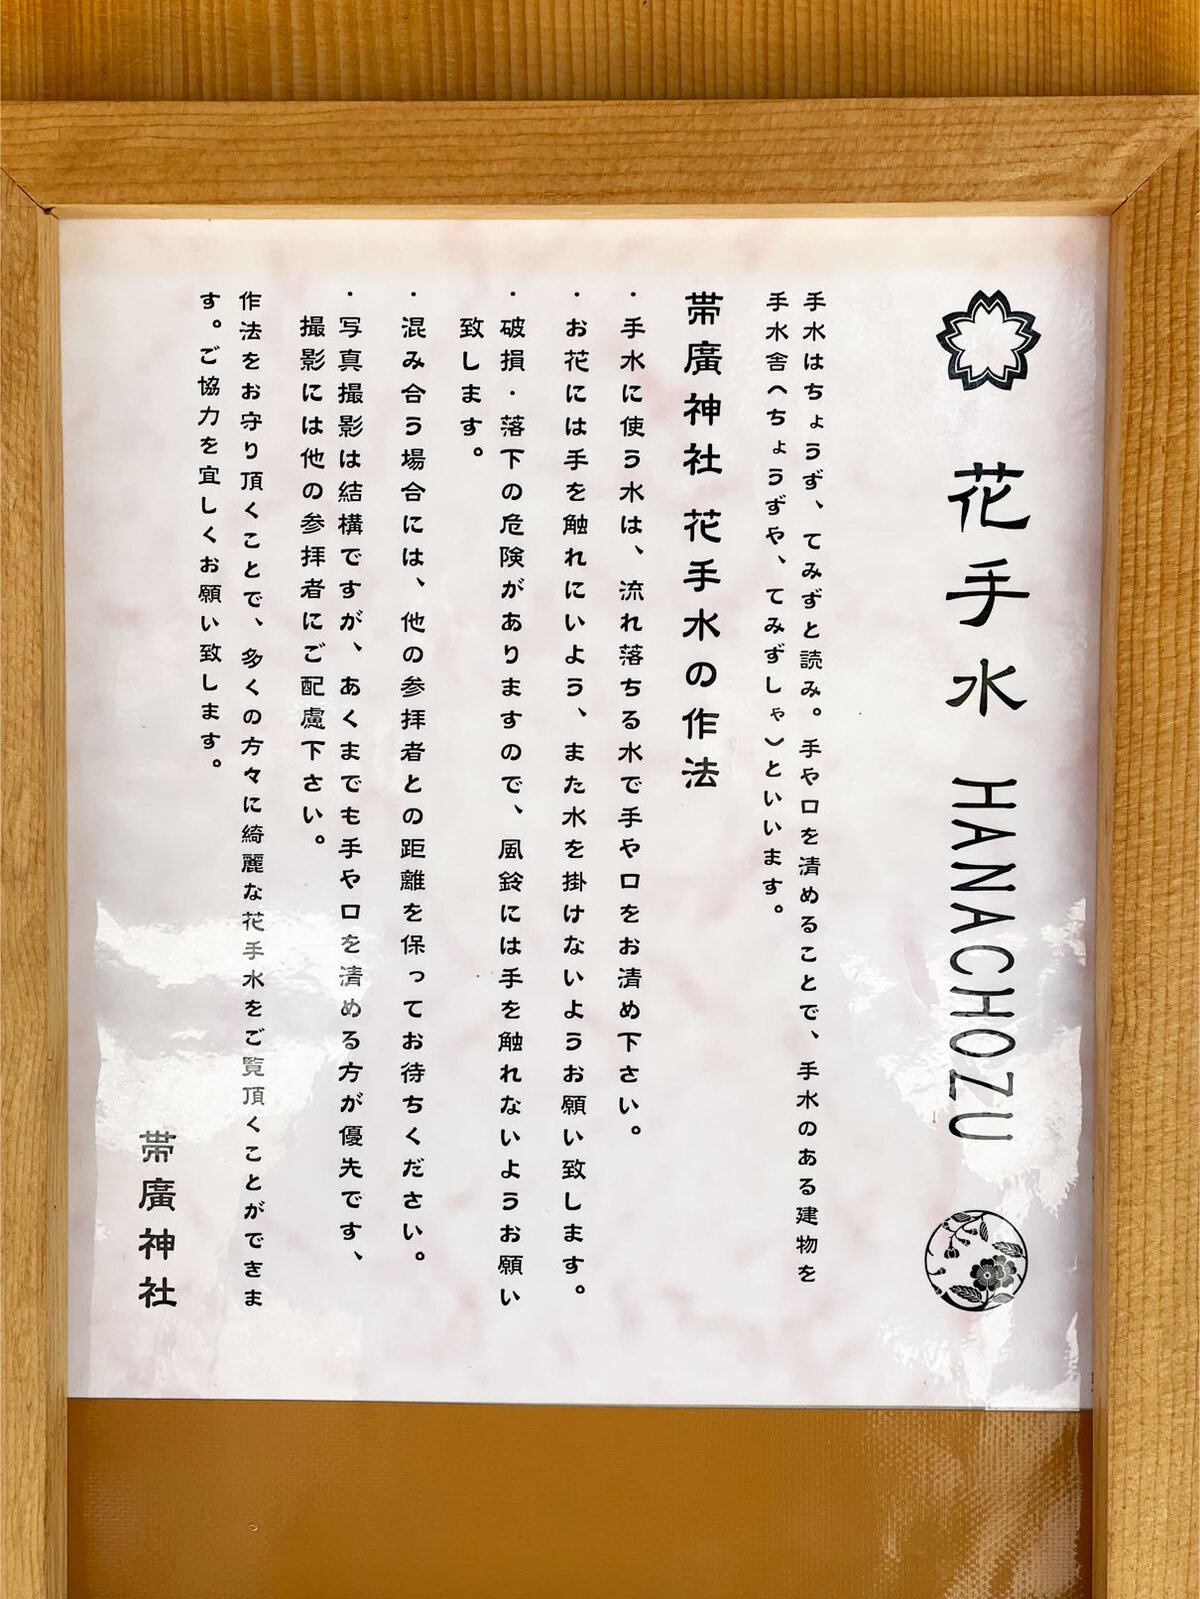 花手水 HANACHOZU
手水はちょうず、てみずと読み。手や口を清めることで、手水のある建物を
手水舎（ちょうずや、てみずしゃ）といいます。
帯廣神社 花手水の作法
・手水に使う水は、流れ落ちる水で手や口をお清め下さい。
・お花には手を触れにいよう、また水を掛けないようお願い致します。
・破損・落下の危険がありますので、風鈴には手を触れないようお願い
致します。
・混み合う場合には、他の参拝者との距離を保ってお待ちください。
・写真撮影は結構ですが、あくまでも手や口を清める方が優先です、
撮影には他の参拝者にご配慮下さい。
作法をお守り頂くことで、多くの方々に綺麗な花手水をご覧頂くことができま
す。ご協力を宜しくお願い致します。
帯廣神社